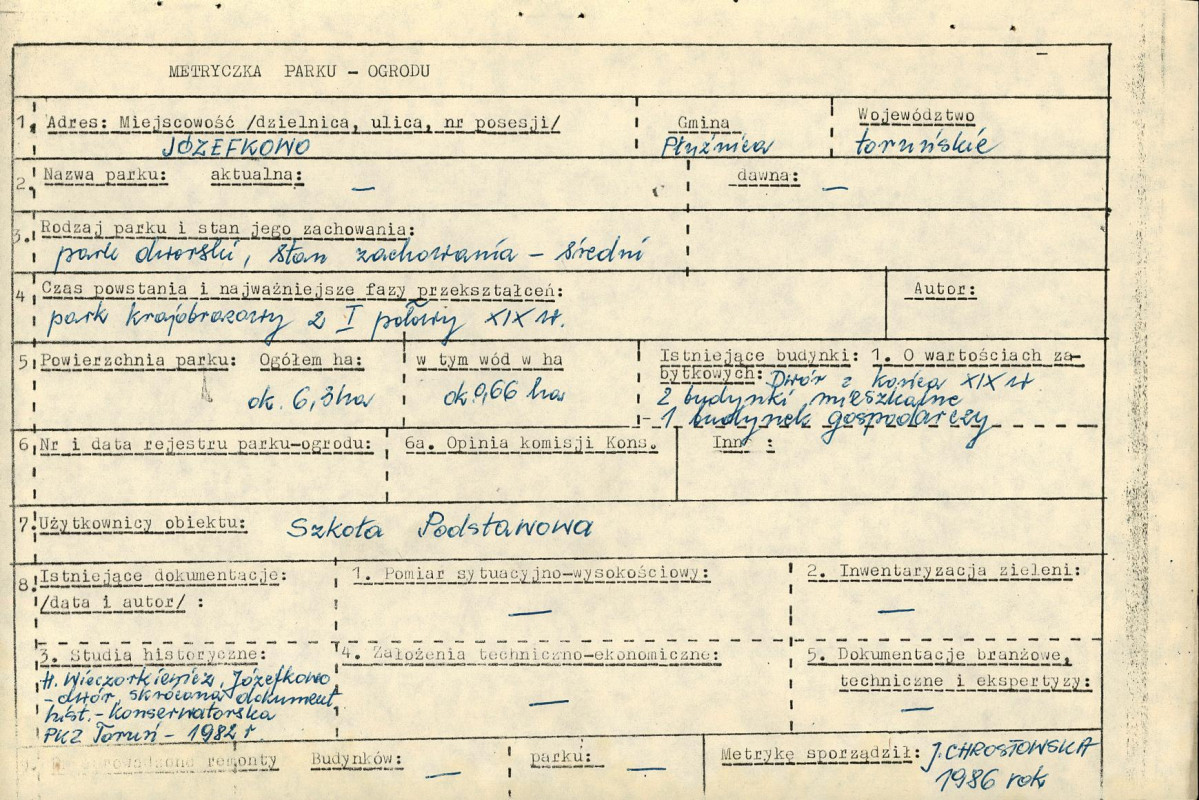 METRYCZKA PARKU - OGRODU
1. Adres: Miejscowość /dzielnica, ulica, nr posesji/
JÓZEFKOWO
Gmina
Płużnica
Województwo
toruńskie
2. Nazwa parku: aktualna: —
dawna: —
3. Rodzaj parku i stan jego zachowania:
park dworski, stan zachowania - średni
4 Czas powstania i najważniejsze fazy przekształceń:
park krajobrazowy z I połowy XIX w.
Autor:
5 Powierzchnia parku: Ogółem ha:
ok. 6,3 ha
w tym wód w ha
ok. 0,66 ha
Istniejące budynki: 1. O wartościach za-
bytkowych: Dwór z końca XIX w
2 budynki mieszkalne
- 1 budynek gospodarczy
6. Nr i data rejestru parku-ogrodu:
6a. Opinia komisji Kons.
Inne :
7. Użytkownicy obiektu: Szkoła Podstawowa
8. Istniejące dokumentacje:
/data i autor/ :
1. Pomiar sytuacyjno-wysokościowy:
—
2. Inwentaryzacja zieleni:
—
3. Studia historyczne:
H. Wieczorkiewicz, Józefkowo
- dwór, skrócona dokument
hist. - konserwatorska
PKZ Toruń - 1982 r
4. Założenia techniczno-ekonomiczne:
—
5. Dokumentacje branżowe,
techniczne i ekspertyzy:
—
remonty Budynków: —
parku: —
Metrykę sporządził: J. CHROSTOWSKA
1986 rok